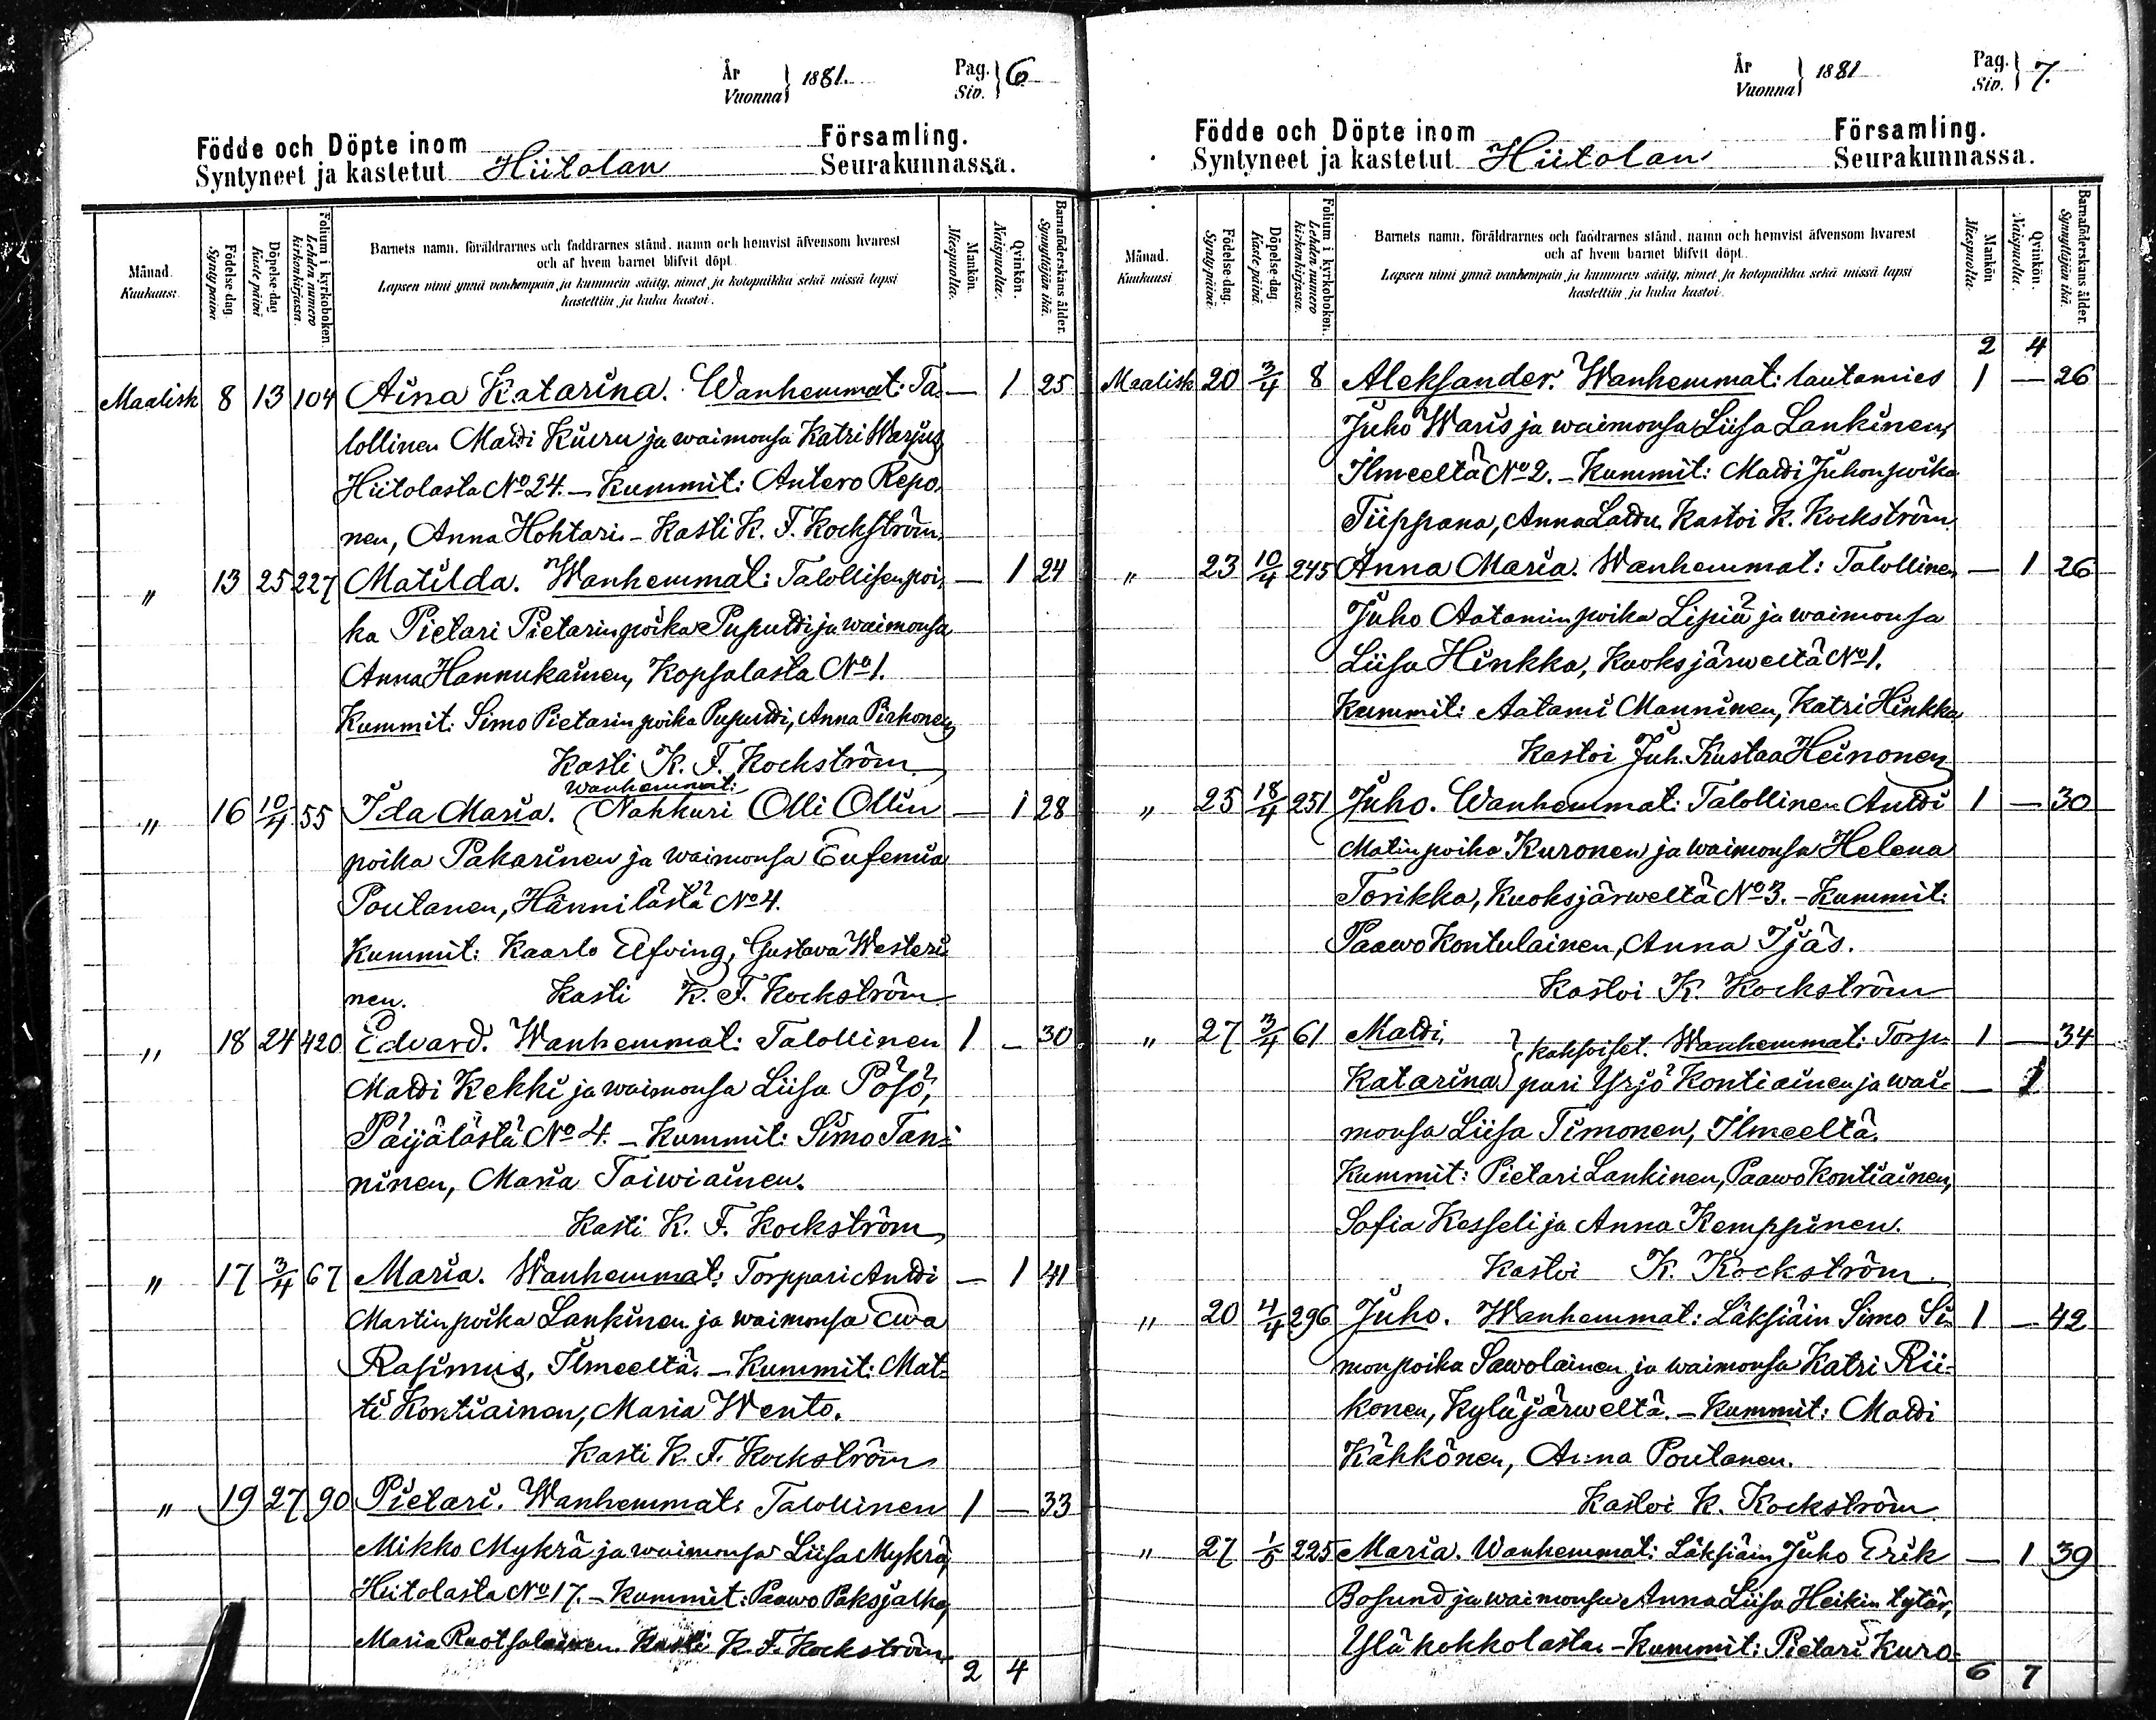 År
Vuonna } 1881.
Pag.
Siv. } 6
Födde och Döpte inom Församling.
Syntyneet ja kastetut Hiitolan Seurakunnassa.
Månad.
Kuukausi.
Födelse-dag.
Syntypäivä
Döpelse-dag
Kastepäivä
Folium i kyrkoboken.
Lehden numero kirkonkirjassa.
Barnets namn, föräldrarnes och faddrarnes stånd, namn och hemvist äfvensom hvarest
och af hvem barnet blifvit döpt.
Lapsen nimi ynnä vanhempain ja kummein sääty, nimet ja kotopaikka sekä missä lapsi
kastettiin ja kuka kastoi.
Mankön.
Miespuolta.
Qvinkön.
Naispuolta.
Barnaföderskans ålder.
Synnyttäjän ikä.
Maalisk 8 13 104 Aina Katarina. Wanhemmat: Ta- — 1 25
lollinen Matti Kiuru ja waimonsa Katri Warjus,
Hiitolasta No 24. – Kummit: Antero Repo-
nen, Anna Hohtari. – Kasti K. F. Kockström.
" 13 25 227 Matilda. Wanhemmat: Talollisenpoi- — 1 24
ka Pietari Pietarinpoika Puputti ja waimonsa
Anna Hannukainen, Kopsalasta No 1.
Kummit: Simo Pietarinpoika Puputti, Anna Pirhonen
Kasti K. F. Kockström.
Wanhemmat:
" 16 10/4 55 Ida Maria. Nahkuri Olli Ollin — 1 28
poika Pakarinen ja waimonsa Eufemia
Poutanen, Hännilästä No 4.
Kummit: Kaarlo Elfving, Gustava Westeri-
nen. Kasti K. F. Kockström
" 18 24 420 Edvard. Wanhemmat: Talollinen 1 – 30
Matti Kekki ja waimonsa Liisa Pösö,
Päijälästä No 4. – Kummit: Simo Tan-
ninen, Maria Taiwiainen.
Kasti K. F. Kockström
" 17 3/4 67 Maria. Wanhemmat: Torppari Antti — 1 41
Martinpoika Lankinen ja waimonsa Ewa
Rasimus, Ilmeeltä. – Kummit: Mat-
ti Kontiainen, Maria Wento.
Kasti K. F. Kockström
" 19 27 90 Pietari. Wanhemmat: Talollinen 1 — 33
Mikko Mykrä ja waimonsa Liisa Mykrä,
Hiitolasta No 17. – Kummit: Paawo Paksjalka,
Maria Ruotsalainen. Kasti K. F. Kockström.
2 4
År
Vuonna } 1881
Pag.
Siv. } 7.
Födde och Döpte inom Församling.
Syntyneet ja kastetut Hiitolan Seurakunnassa.
Månad.
Kuukausi
Födelse-dag.
Syntypäivä.
Döpelse-dag
Kastepäivä.
Folium i kyrkoboken.
Lehden numero kirkonkirjassa.
Barnets namn, föräldrarnes och faddrarnes stånd, namn och hemvist äfvensom hvarest
och af hvem barnet blifvit döpt.
Lapsen nimi ynnä vanhempain ja kummein sääty, nimet ja kotopaikka sekä missä lapsi
kastettiin ja kuka kastoi.
Mankön
Miespuolta.
Qvinkön.
Naispuolta.
Barnaföderskans ålder.
Synnyttäjän ikä.
2 4
Maalisk 20 3/4 8 Aleksander. Wanhemmat: lautamies 1 — 26
Juho Waris ja waimonsa Liisa Lankinen,
Ilmeeltä No 2. – Kummit: Matti Juhonpoika
Tiippana, Anna Lattu. Kastoi K. Kockström.
" 23 10/4 245 Anna Maria. Wanhemmat: Talollinen — 1 26
Juho Aataminpoika Lipiä ja waimonsa
Liisa Hinkka, Kuoksjärweltä No 1.
Kummit: Aatami Manninen, Katri Hinkka
Kastoi Juh. Kustaa Heinonen
" 25 18/4 251 Juho. Wanhemmat: Talollinen Antti 1 — 30
Matinpoika Kuronen ja waimonsa Helena
Torikka, Kuoksjärweltä No 3. – Kummit:
Paawo Kontulainen, Anna Ijäs.
Kastoi K. Kockström
" 27 3/4 61 Matti, } kaksoiset. Wanhemmat: Torp- 1 — 34
Katarina } pari Yrjö Kontiainen ja wai- — 1
monsa Liisa Timonen, Ilmeeltä.
Kummit: Pietari Lankinen, Paawo Kontiainen,
Sofia Kesseli ja Anna Kemppinen.
Kastoi K. Kockström
" 20 4/4 296 Juho. Wanhemmat: Läksiäin Simo Si- 1 — 42
monpoika Sawolainen ja waimonsa Katri Rii-
konen, Kyläjärweltä. – Kummit: Matti
Kähkönen, Anna Poutanen.
Kastoi K. Kockström
" 27 1/5 225 Maria. Wanhemmat: Läksiäin Juho Erik — 1 39
Bosund ja waimonsa Anna Liisa Heikin tytär,
Yläkokkolasta. – Kummit: Pietari Kuro-
6 7